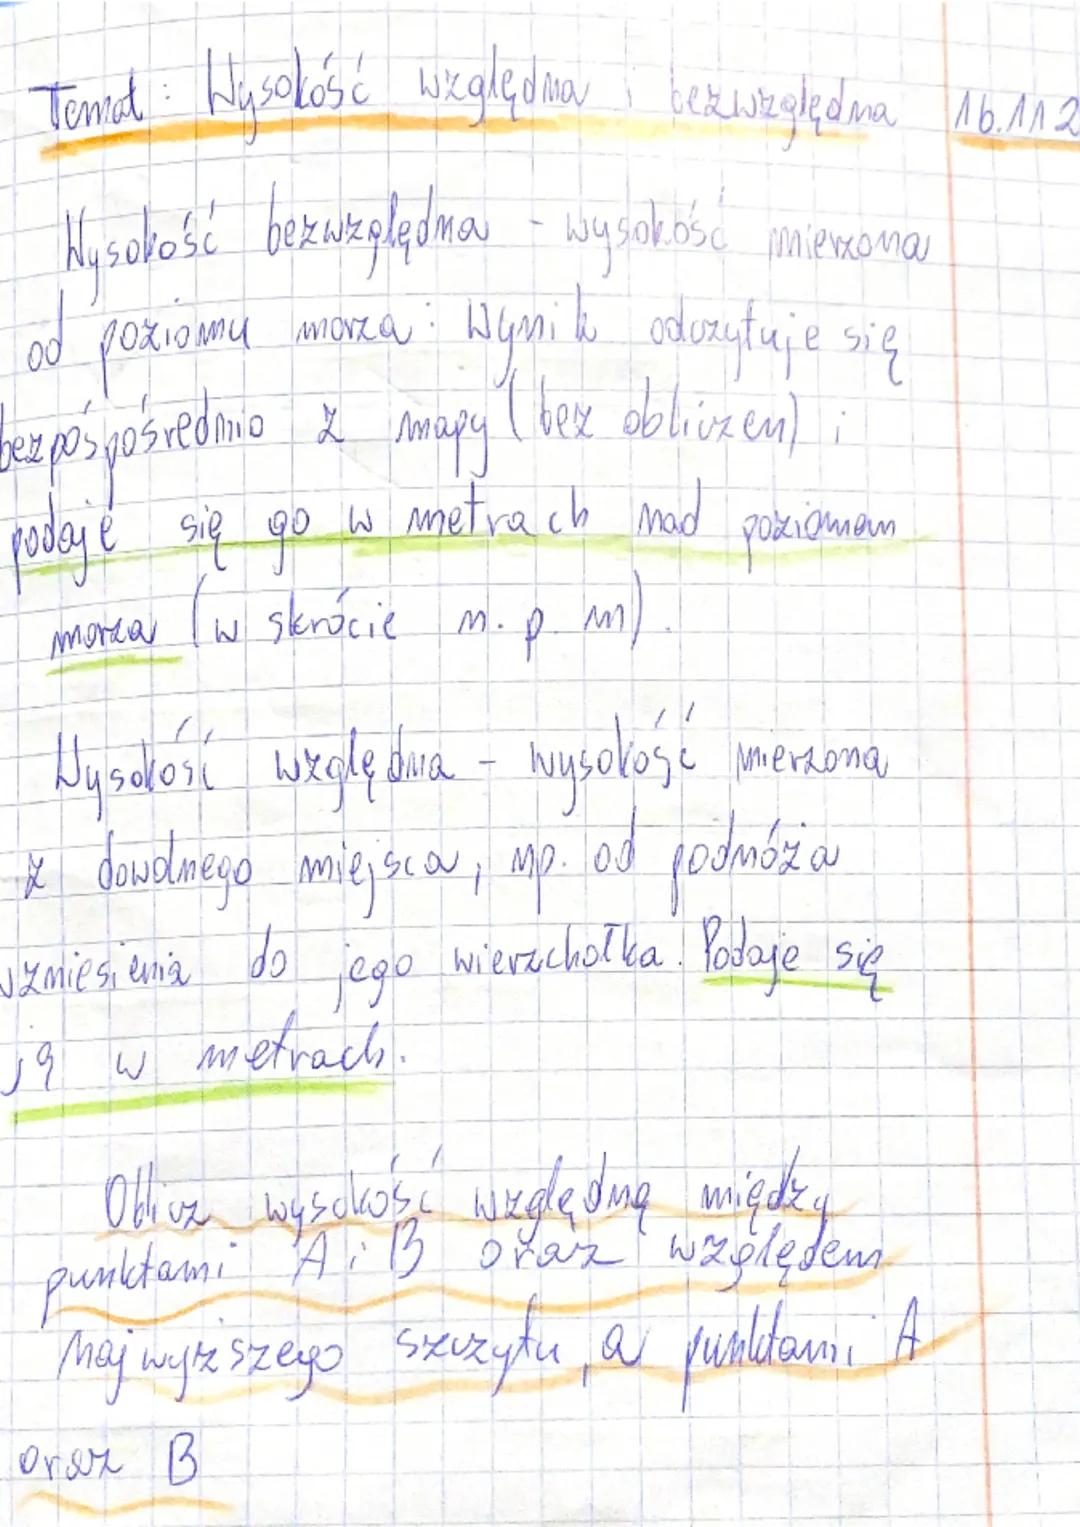 Temat: Wysokość względna i bezwzględna 16.11.2
Wysokość bezwzględna - wysokość mierzona
od poziomu morza: Wynik odczytuje się
bezpośpośrednio z mapy (bez obliczen) i
podaje się go w metrach nad poziomem
morza (w skrócie m. p. m).
Wysokość względna - wysokość mierzona
z dowolnego miejsca, np. od podnóża
wzniesienia do jego wierzchołka. Podaje się
ją w metrach.
Oblicz wysokość względną między
punktami A i B oraz względem
najwyższego szczytu, a punktami A
oraz B